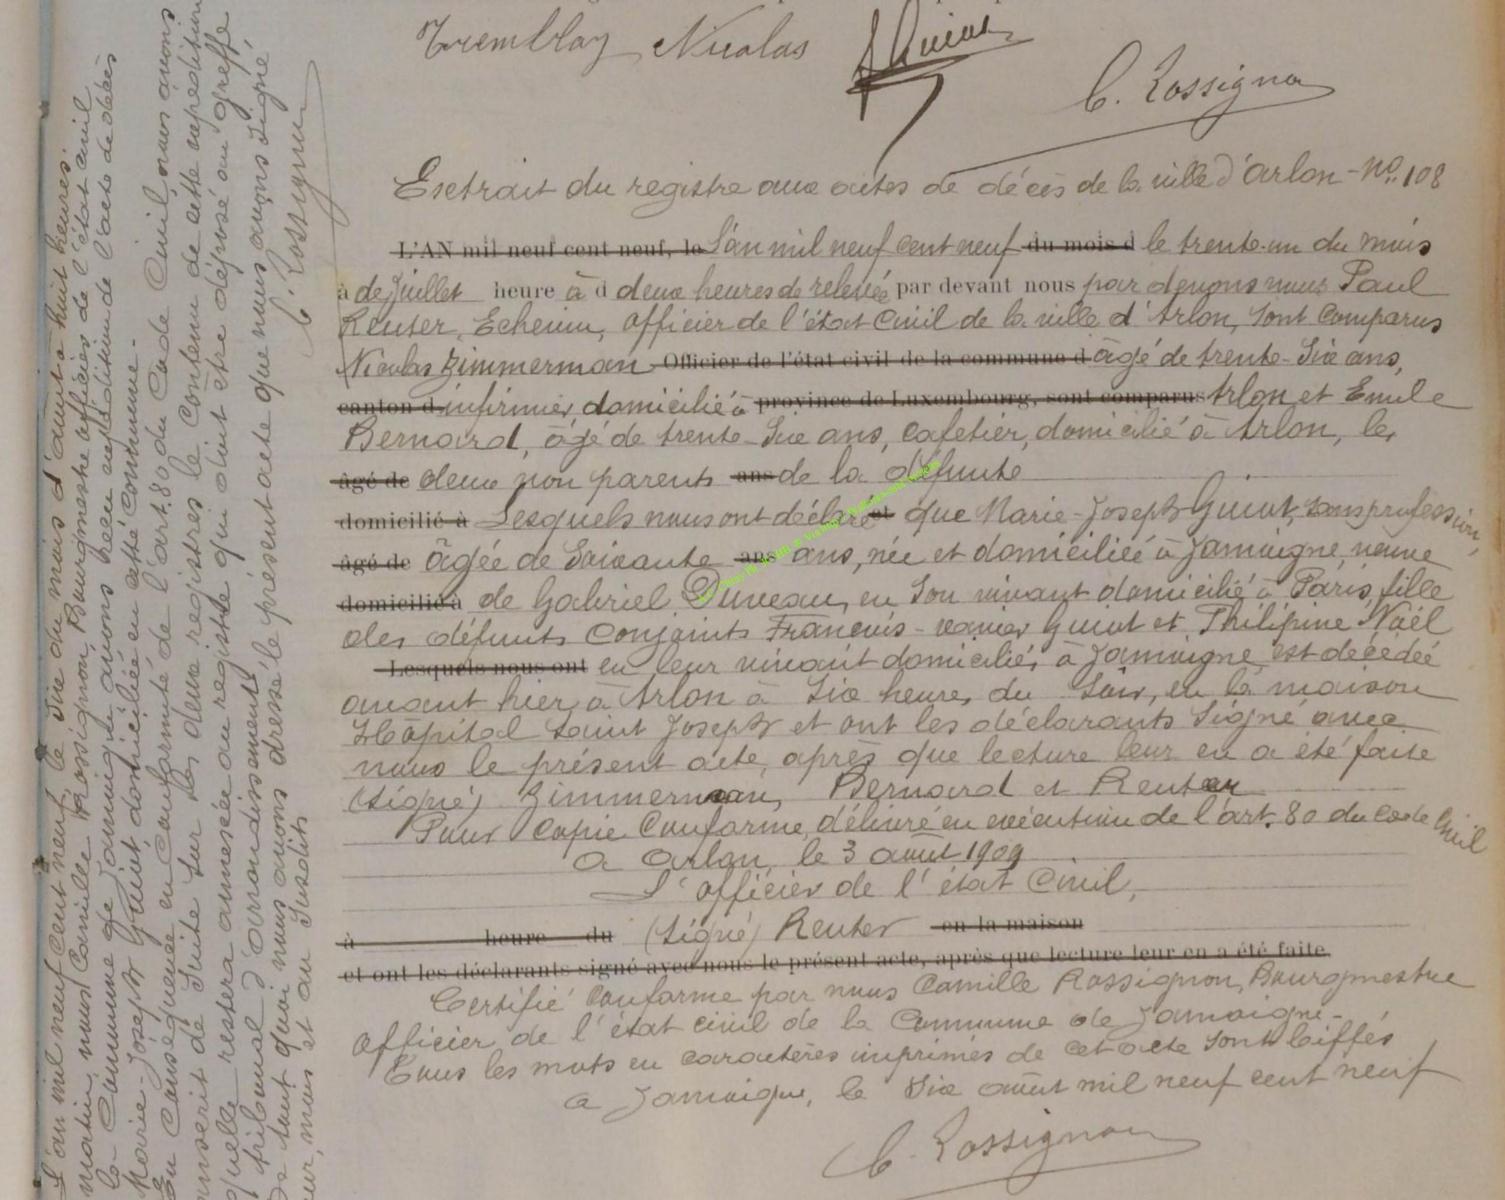 Tremblay Nicolas Guiot C. Rossignon
Esctrait du registre aux actes de décès de la ville d'Arlon - No. 108
L'AN mil neuf cent neuf, le L'an mil neuf cent neuf du mois d le trente-un du mois
à de Juillet heure à d deux heures de relevée par devant nous par devons nous Paul
Reuter, Echevin, officier de l'état civil de la ville d'Arlon, sont comparus
Nicolas Zimmerman Officier de l'état civil de la commune d âgé de trente-six ans,
canton d infirmier domicilié à province de Luxembourg, sont comparus Arlon et Emile
Bernard, âgé de trente-six ans, cafetier, domicilié à Arlon, les
âgé de deux non parents ans de la défunte
domicilié à Lesquels nous ont déclaré et que Marie-Joseph Guiot, sans profession,
âgé de âgée de soixante ans ans, née et domiciliée à Jamoigne, veuve
domicilié à de Gabriel Duveau, en son vivant domicilié à Paris, fille
des défunts conjoints François-xavier Guiot et Philipine Noël
Lesquels nous ont en leur vivant domiciliés à Jamoigne, est décédée
avant hier à Arlon à six heures du soir, en la maison
Hôpital Saint Joseph et ont les déclarants signé avec
nous le présent acte, après que lecture leur en a été faite
(Signé) Zimmerman, Bernard et Reuter
Pour copie conforme délivré en exécution de l'art. 80 du code Civil
A Arlon, le 3 août 1909
L'officier de l'état civil,
à heure du (signé) Reuter en la maison
et ont les déclarants signé avec nous le présent acte, après que lecture leur en a été faite.
Certifié conforme par nous Camille Rossignon, Bourgmestre
officier de l'état civil de la Commune de Jamoigne-
Tous les mots en caractères imprimés de cet acte sont biffés
A Jamoigne, le six août mil neuf cent neuf
C. Rossignon
L'an mil neuf cent neuf, le six du mois d'août à huit heures
matin, nous Camille Rossignon, Bourgmestre officier de l'état civil
la Commune de Jamoigne avons reçu expédition de l'acte de décès
Marie-Joseph Guiot domiciliée en cette commune-
En conséquence en conformité de l'art. 80 du Code Civil, nous avons
transcrit de suite sur les deux registres le contenu de cette expédition
quelle restera annexée au registre qui doit être déposé au greffe
tribunal d'arrondissement
De tout quoi nous avons dressé le présent acte que nous avons signé
jour, mois et an susdits
C. Rossignon